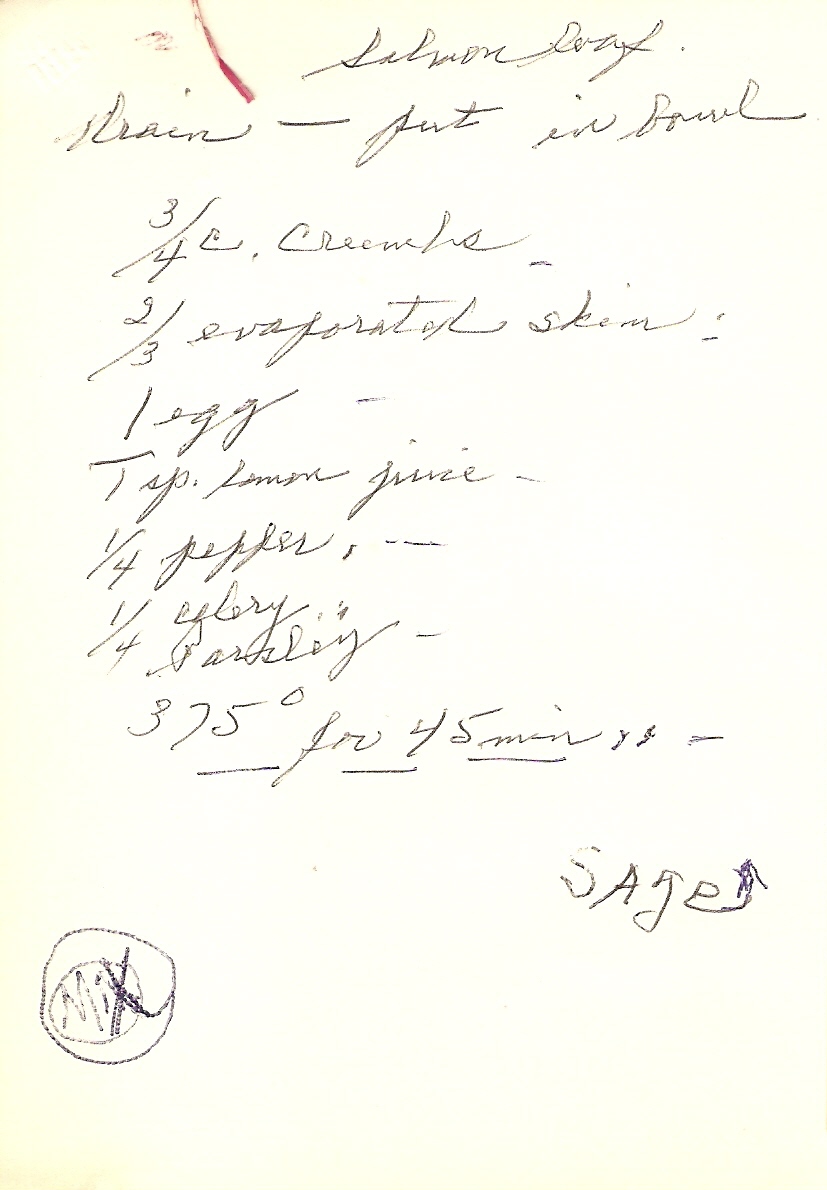 Salmon loaf.
Drain — put in bowl
3/4 c. Crumbs -
2/3 evaporated skim :
1 egg -
Tsp. lemon juice -
1/4 pepper, --
1/4 celery,"
Parsley -
375° for 45 min,, =
SAge
Mix